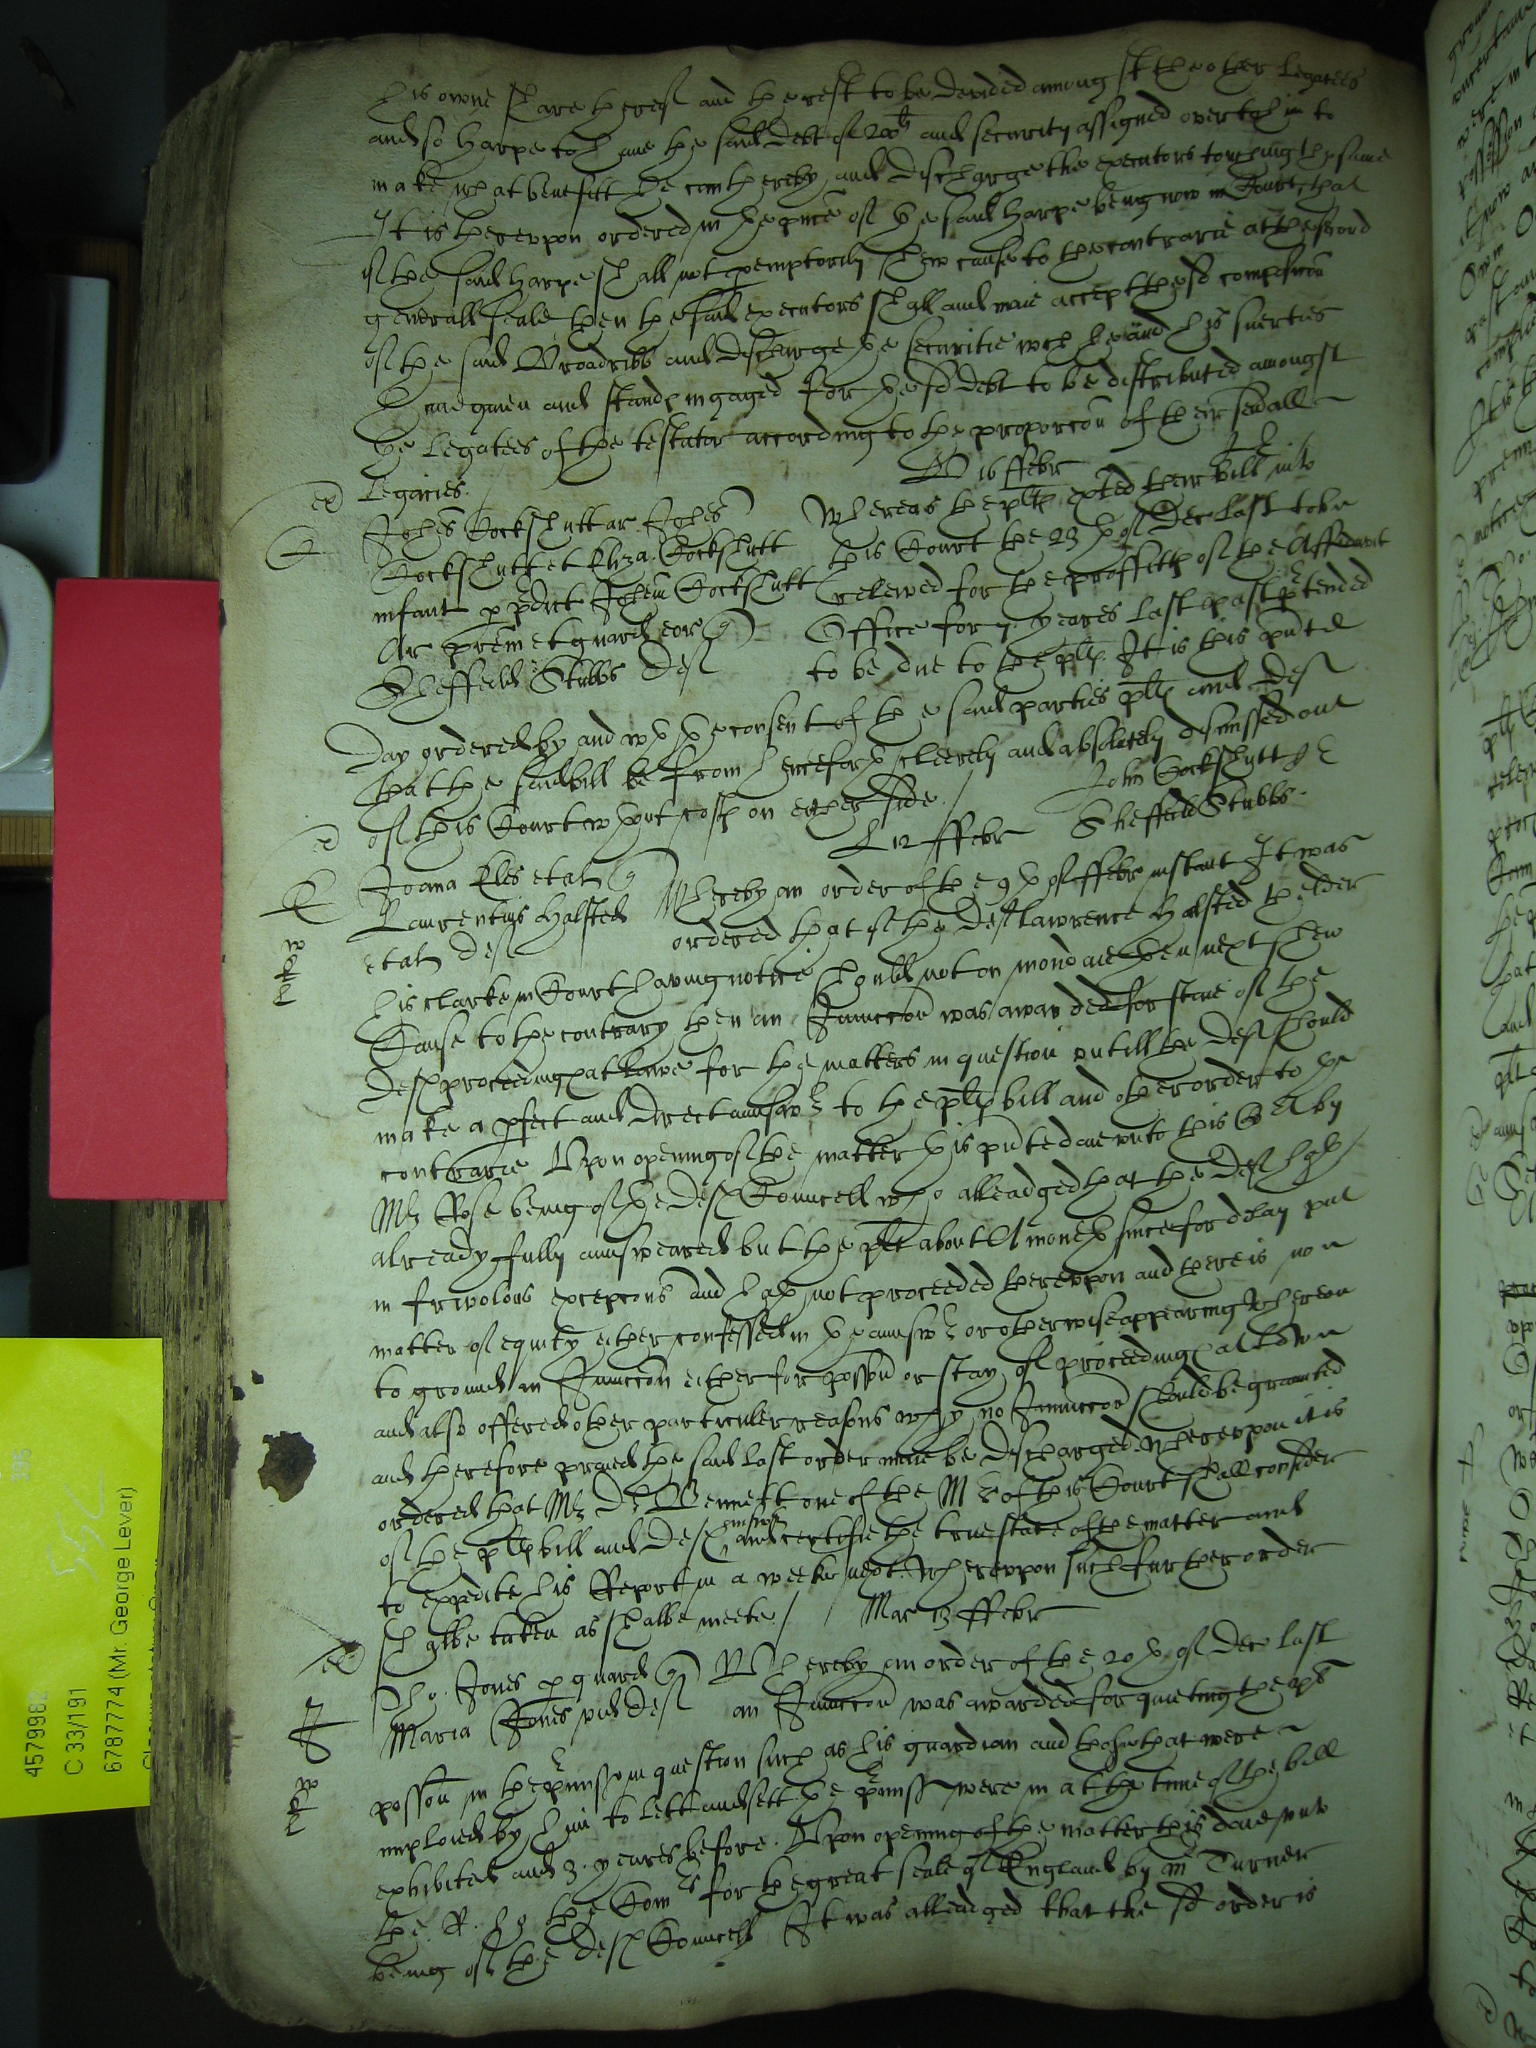 his owne share thereof and the rest to be devided amongst the other Legatees
and so Harpe to have the said Debt of 200li and security assigned over to him to
make what benefitt he can thereby and discharge the executors touching the same
It is thereupon ordered in the pnce of the said Harpe being now in Court that
if the said Harpe shall not peremptorily shew cause to the contrarie at the second
generall seale then the said executors shall and maie accept the sd composicon
of the said Broadribb and discharge the securitie wch he and his suerties
have given and stand ingaged for the sd debt to be distributed amongst
the Legatees of the testator according to the proporcon of their severall
Legacies.
D 16 ffebr
Johes Cockshutt ar Johes
Cockshutt et Eliza Cockshutt
infant p predict Johem Cockshutt
Ar prem et guard eor Q
Sheffeild Stubbs Def
Whereas the plts exted their bill into
this Court the 23th of Dec last to be
releived for the proffitts of the Affidavit
Office for 7 yeares last past ptended
to be due to the plts It is this pnte
Day ordered by and wth the consent of the said parties plts and Def
that the said bill be from henceforth cleerely and absolutely dismissed out
of this Court wthout costs on either side.
John Cockshutt
Sheffeild Stubbs.
L 12 ffebr
Joana Eles et al Q
Laurentius Halsted
et al Def
Whereby an order of the 9th of ffebr instant It was
ordered that if the Def Lawrence Halsted the elder
his clarke in Court having notice should not on mondaie then next shew
Cause to the contrary then an Iniuccon was awarded for staie of the
Defts proceedings at Lawe for the matters in question untill the Deft should
make a pfect and direct answr to the plts bill and other order to the
contrarie Upon opening of the matter this pnte daie unto this Co by
Mr Rose being of the Defts Councell who alleadged that the Def hath
already fully answeared but the plt about A moneth since for delay put
in frivolous excepcons and hath not proceeded thereupon and there is noe
matter of equity either confessed in the answr or otherwise appearing whereon
to ground an Iniuccon either for posson or stay of proceedings at Lawe
and also offered other particuler reasons why no Iniuccon should be graunted
and therefore praied the said last order maie be discharged Whereupon it is
ordered that Mr Dr Bennett one of the Mrs of this Court shall consider
of the plts bill and Defts answer and certifie the true state of the matter and
to expedite his Report in a weeke next Whereupon such further order
shalbe taken as shalbe meete /
Mar 13 ffebr
Tho. Jones p guard Q
Maria Jones vid Def
Whereby an order of the 20th of Dec last
an Iniuccon was awarded for quieting the
posson in the premisses in question such as his guardian and those that were
imploied by him to lett and sett the premiss were in at the time of the bill
exhibited and 3. yeares before. Upon opening of the matter this daie unto
the R. ho the Comrs for the great seale of England by Mr Turner
being of the Defts Councell It was alleadged that the sd order is
4579982
C 33/1191
6787774 (Mr. George Lever)